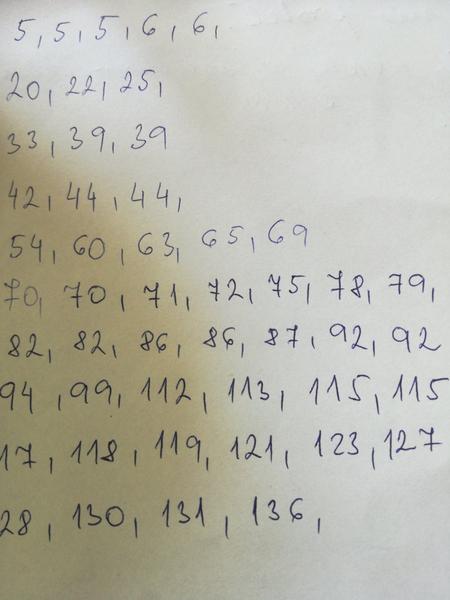 5, 5, 5, 6, 6,
20, 22, 25,
33, 39, 39
42, 44, 44,
54, 60, 63, 65, 69
70, 70, 71, 72, 75, 78, 79,
82, 82, 86, 86, 87, 92, 92
94, 99, 112, 113, 115, 115
17, 118, 119, 121, 123, 127
28, 130, 131, 136,